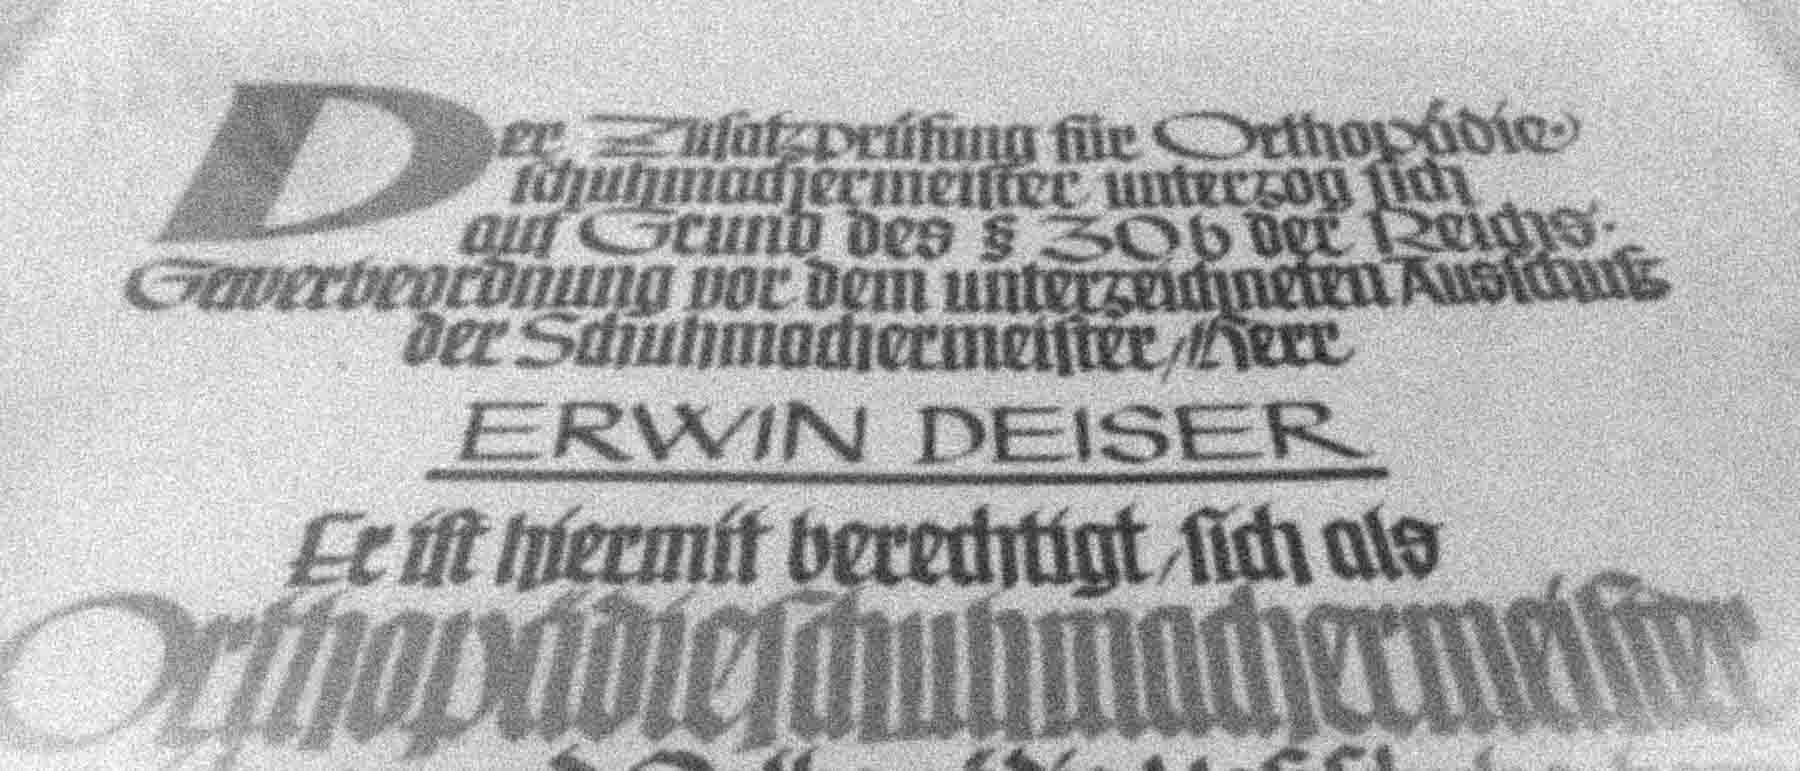 Der Zusatzprüfung für Orthopädie-
schuhmachermeister unterzog sich
auf Grund des § 30b der Reichs-
Gewerbeordnung vor dem unterzeichneten Ausschuß
der Schuhmachermeister, Herr
ERWIN DEISER
Er ist hiermit berechtigt, sich als
Orthopädieschuhmachermeister